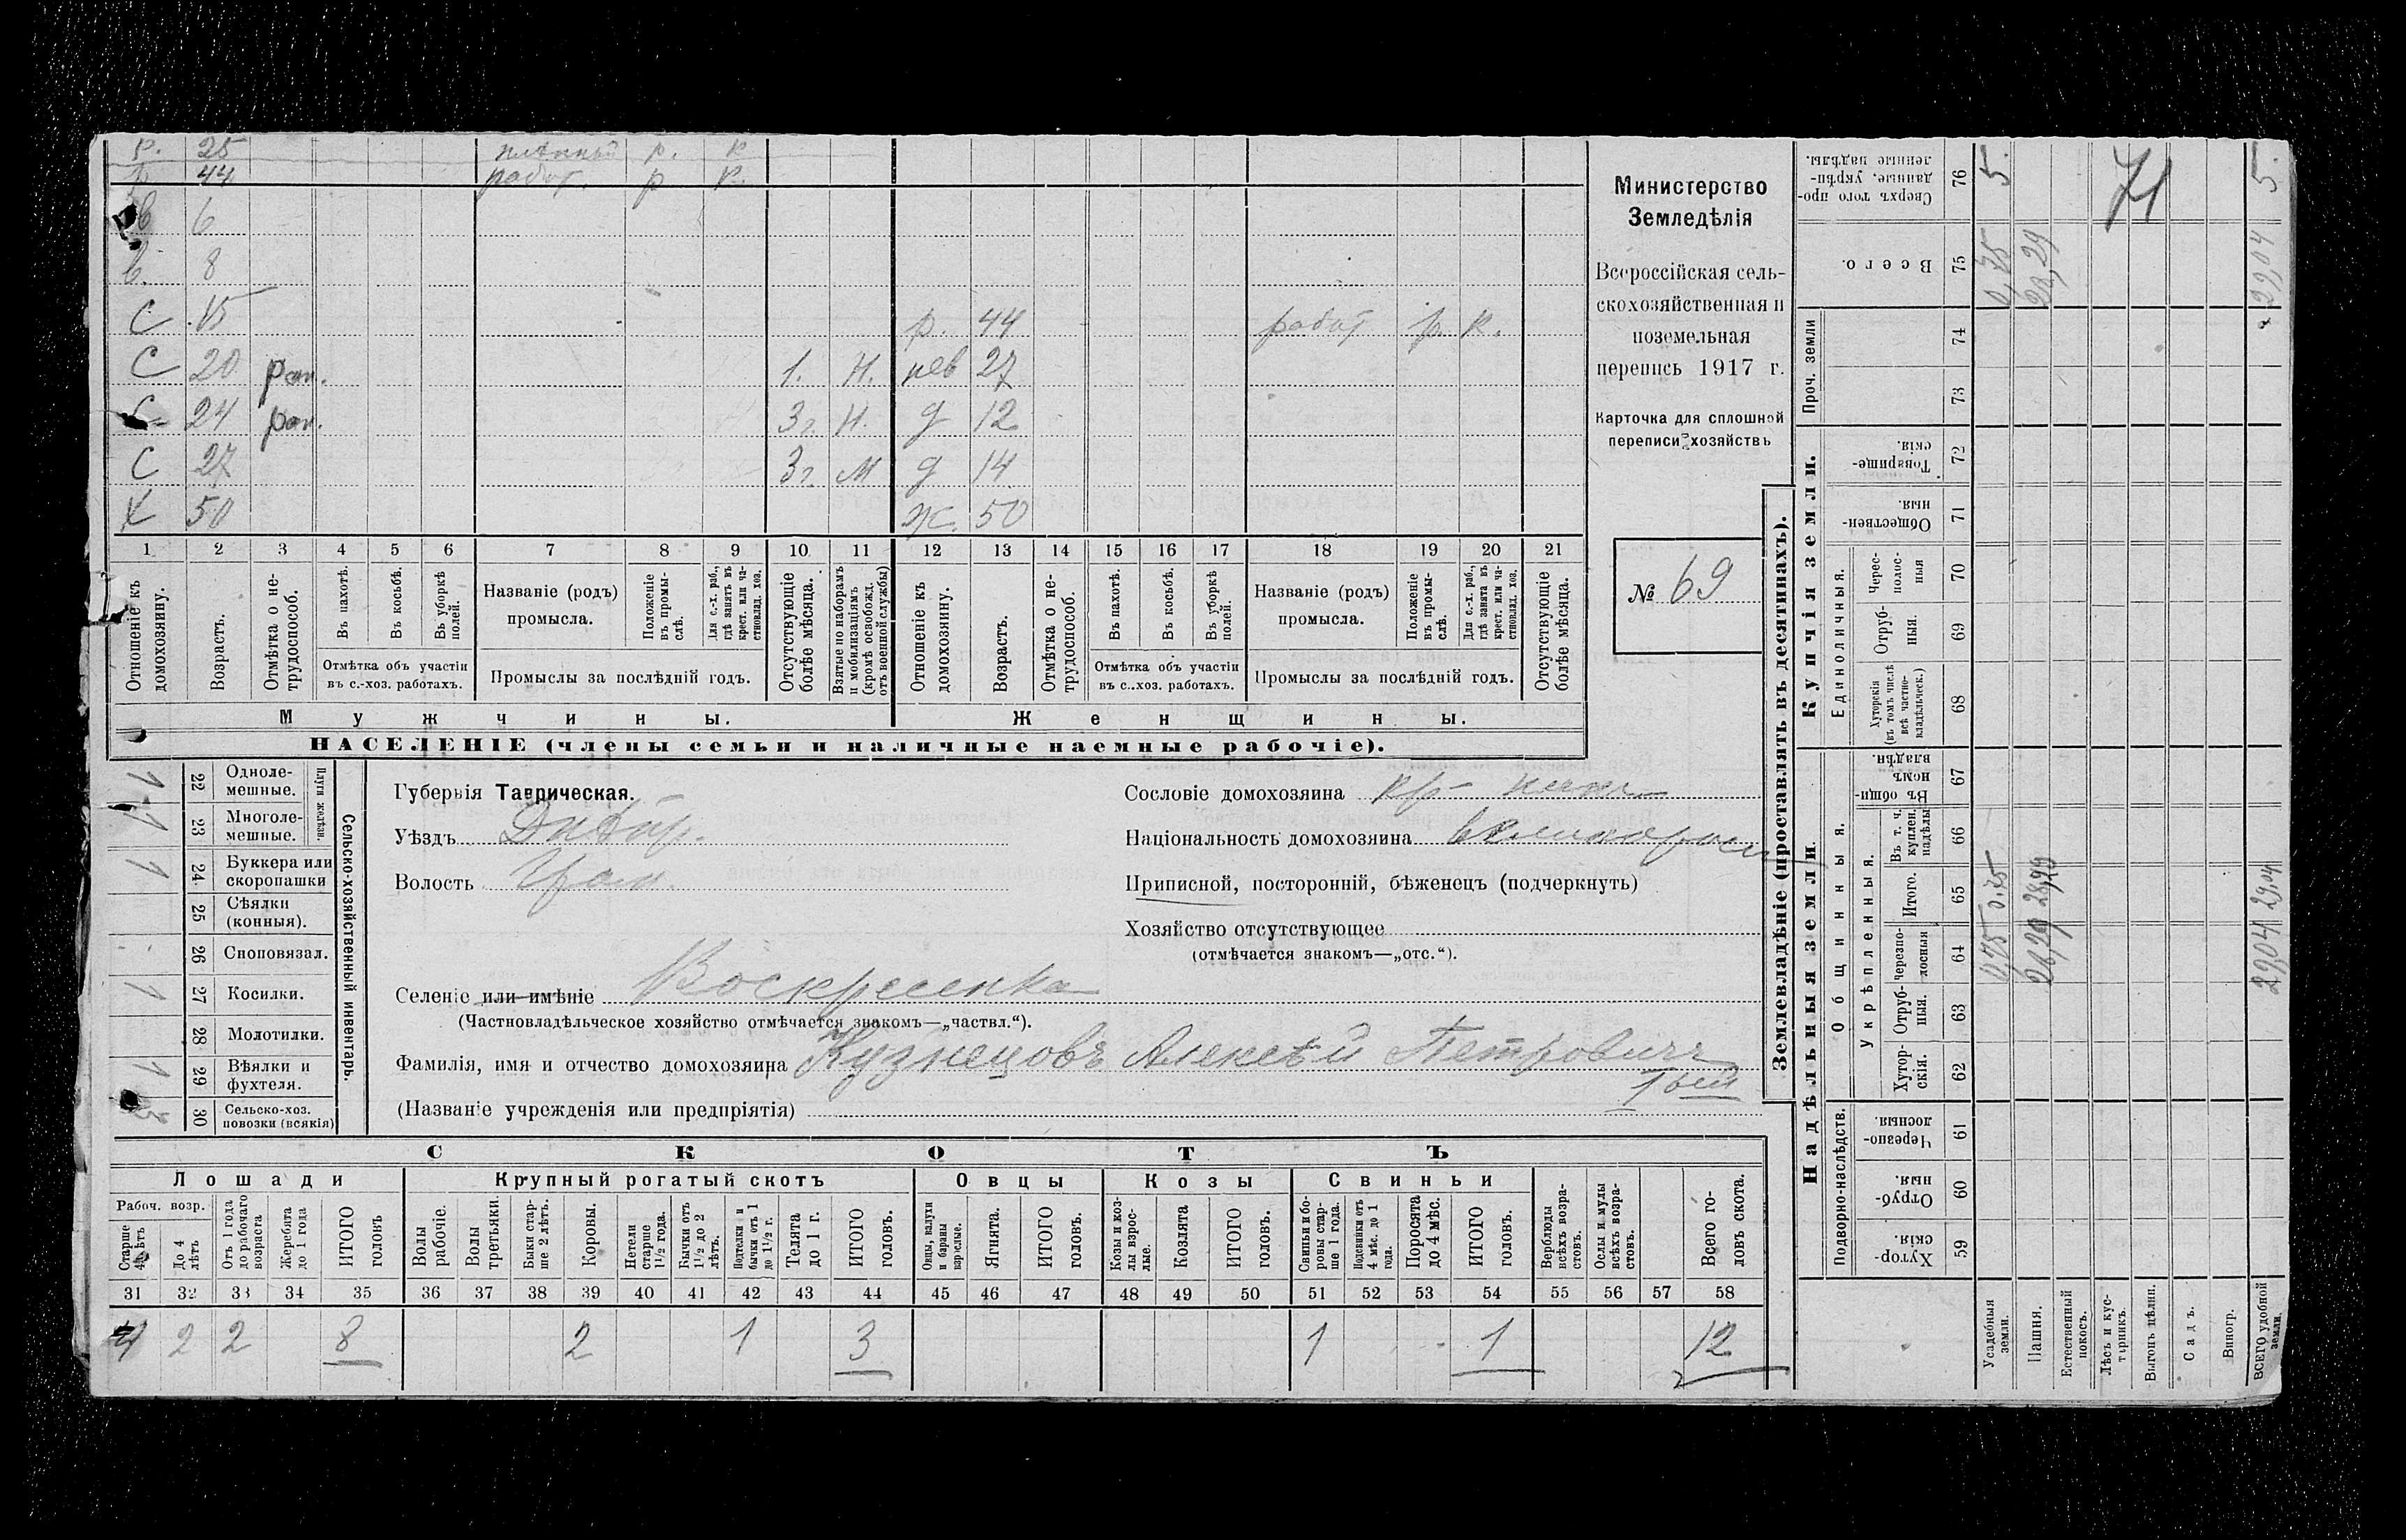 р. 25 плѣнный р. к
р 44 работ. р к.
6
в. 8
С 15 р. 44 работ р. к.
С 20 ран. 1. Н. нев 27
С 24 ран. 3 г. Н. д 12
С 27 3 г. М д 14
Х 50 ж. 50
1 2 3 4 5 6 7 8 9 10 11 12 13 14 15 16 17 18 19 20 21
Отношеніе къ домохозяину.
Возрастъ.
Отмѣтка о не-трудоспособ.
Въ пахотѣ.
Въ косьбѣ.
Въ уборкѣ полей.
Отмѣтка объ участіи въ с.-хоз. работахъ.
Названіе (родъ) промысла.
Положеніе въ промы-слѣ.
Для с.-х. раб., гдѣ занятъ въ крест. или ча-стновлад. хоз.
Промыслы за послѣдній годъ.
Отсутствующіе болѣе мѣсяца.
Взятые по наборамъ и мобилизаціямъ (кромѣ освобожд. отъ военной службы)
Отношеніе къ домохозяину.
Возрастъ.
Отмѣтка о не-трудоспособ.
Въ пахотѣ.
Въ косьбѣ.
Въ уборкѣ полей.
Отмѣтка объ участіи въ с..хоз. работахъ.
Названіе (родъ) промысла.
Положеніе въ промы-слѣ.
Для с.-х. раб., гдѣ занята въ крест. или ча-стновлад. хоз.
Промыслы за послѣдній годъ.
Отсутствующіе болѣе мѣсяца.
Мужчины.
Женщины.
НАСЕЛЕНІЕ (члены семьи и наличные наемные рабочіе).
Министерство
Земледѣлія
Всероссійская сель-
скохозяйственная и
поземельная
перепись 1917 г.
Карточка для сплошной
переписи хозяйствъ
№ 69
Сельско-хозяйственный инвентарь.
Плуги желѣзн.
1 22 Одноле-мешные.
1 23 Многоле-мешные.
1 24 Буккера или скоропашки
25 Сѣялки (конныя).
26 Сноповязал.
1 27 Косилки.
28 Молотилки.
1 29 Вѣялки и фухтеля.
3 30 Сельско-хоз. повозки (всякія)
Губернія Таврическая.
Уѣздъ Днѣпр.
Волость
Селеніе или имѣніе Воскресенка
(Частновладѣльческое хозяйство отмѣчается знакомъ—„частвл.“).
Фамилія, имя и отчество домохозяина Кузнецовъ Алексѣй Петровичъ
1 ый
(Названіе учрежденія или предпріятія)
Сословіе домохозяина кр-
Національность домохозяина великоросс
Приписной, посторонній, бѣженецъ (подчеркнуть)
Хозяйство отсутствующее
(отмѣчается знакомъ—„отс.“).
СКОТЪ
Лошади Крупный рогатый скотъ Овцы Козы Свиньи
Рабоч. возр.
Старше 4 лѣтъ
До 4 лѣтъ
Отъ 1 года до рабочаго возраста
Жеребята до 1 года
ИТОГО головъ
Волы рабочіе.
Волы третьяки.
Быки стар-ше 2 лѣтъ.
Коровы.
Нетели старше 1½ года.
Бычки отъ 1½ до 2 лѣтъ.
Подтелки и бычки отъ 1 до 1½ г.
Телята до 1 г.
ИТОГО головъ.
Овцы, валухи и бараны взрослые.
Ягнята.
ИТОГО головъ.
Козы и коз-лы взрос-лые.
Козлята
ИТОГО головъ.
Свиньи и бо-ровы стар-ше 1 года.
Подсвинки отъ 4 мѣс. до 1 года.
Поросята до 4 мѣс.
ИТОГО головъ.
Верблюды всѣхъ возра-стовъ.
Ослы и мулы всѣхъ возра-стовъ.
Всего го-ловъ скота.
31 32 33 34 35 36 37 38 39 40 41 42 43 44 45 46 47 48 49 50 51 52 53 54 55 56 57 58
4 2 2 8 2 1 3 1 1 12
Землевладѣніе (проставлять въ десятинахъ).
Надѣльныя земли.
Купчія земли.
Проч. земли
Подворно-наслѣдств.
Общинныя.
Укрѣпленныя.
Единоличныя.
Сверхъ того про-данные, укрѣп-ленные надѣлы. 76
Всего. 75
74
73
Товарище-скія. 72
Обществен-ныя. 71
Черес-полос-ныя 70
Отруб-ныя. 69
Хуторскія (въ томъ числѣ всѣ частно-владѣльческ.) 68
Въ общин-номъ владѣн. 67
Въ т. ч. куплен. надѣлы 66
Итого. 65
Черезпо-лосныя 64
Отруб-ныя. 63
Хутор-скія. 62
Черезпо-лосныя. 61
Отруб-ныя. 60
Хутор-скія. 59
Усадебныя земли. 0,75 0.75 0,75 5.
Пашня. 28,29
Естественный покосъ.
Лѣсъ и кус-тарникъ. 71
Выгонъ цѣлин.
Садъ.
Виногр.
ВСЕГО удобной земли. 29,04 29,04 29,04 5.